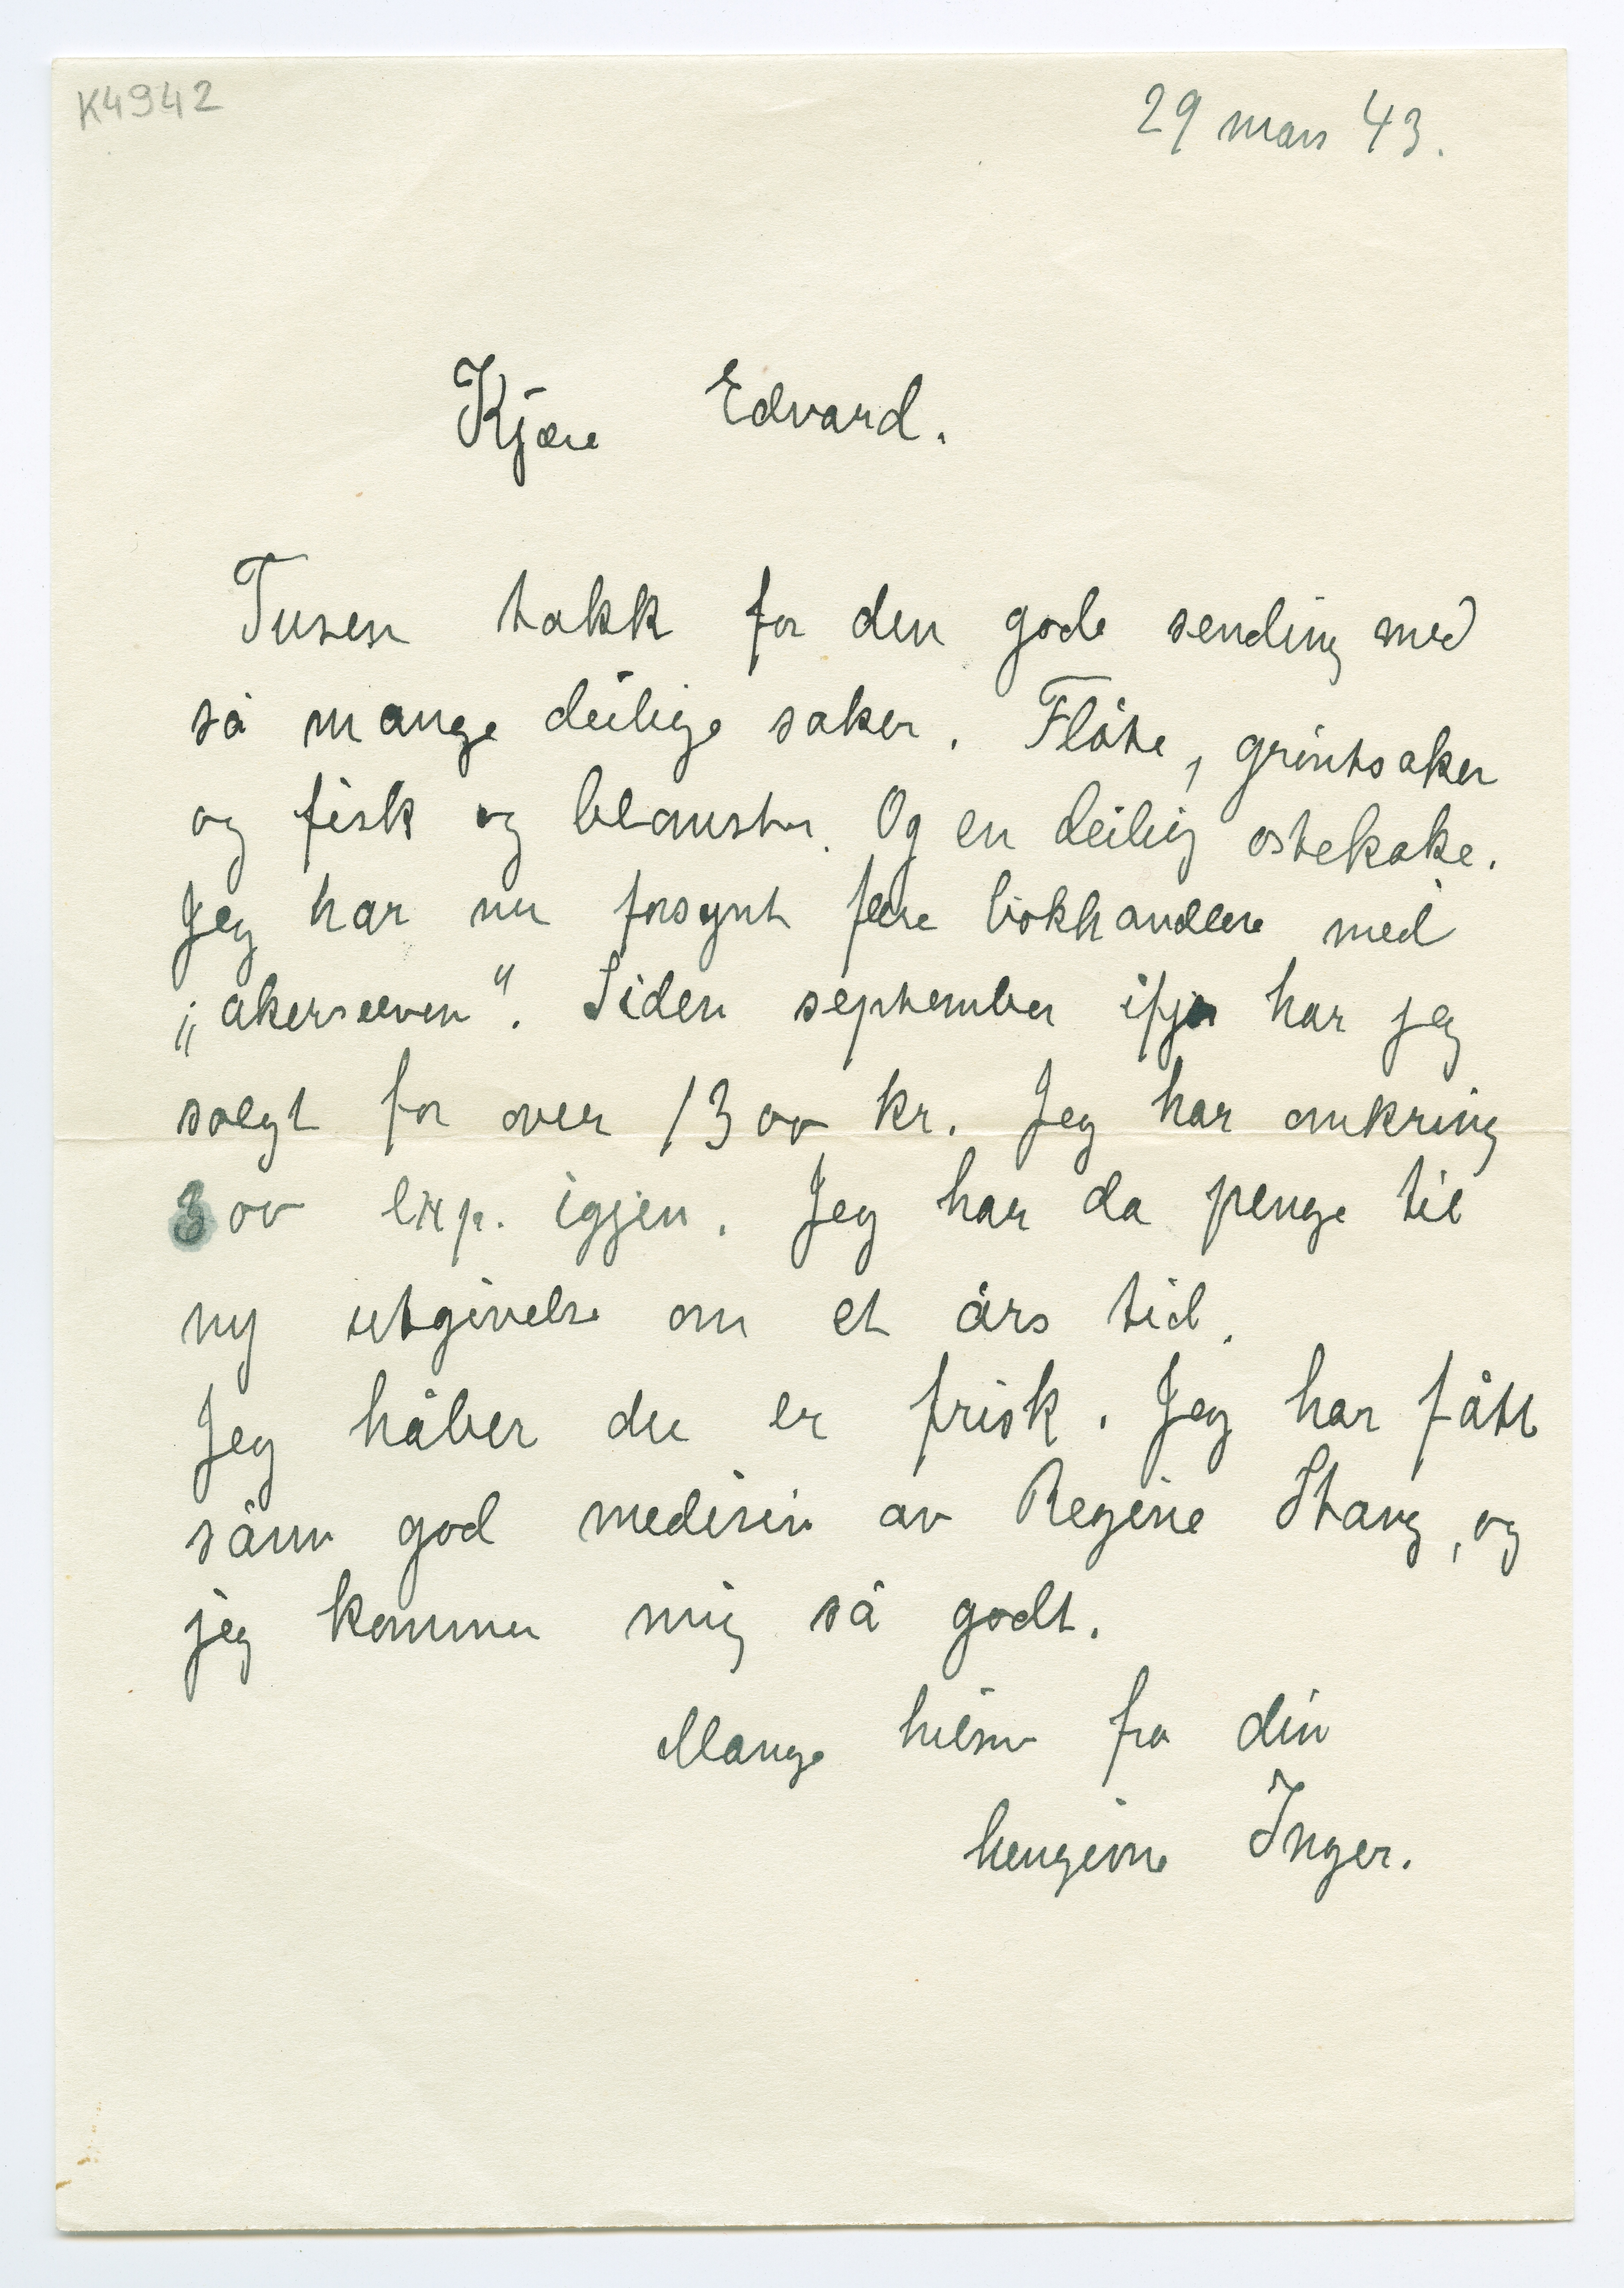 K4942
29 mars 43.
Kjære Edvard.
Tusen takk for den gode sending med
så mange deilige saker. Fløte, grøntsaker
og fisk og blomster. Og en deilig ostekake.
Jeg har nu forsynt flere bokhandlere med
„akerselven". Siden september ifjor har jeg
solgt for over 1300 kr. Jeg har omkring
300 exp. igjen. Jeg har da penge til
ny utgivelse om et års tid.
Jeg håber du er frisk. Jeg har fått
sånn god medisin av Regine Stang, og
jeg kommer mig så godt.
Mange hilsn fra din
hengivne Inger.